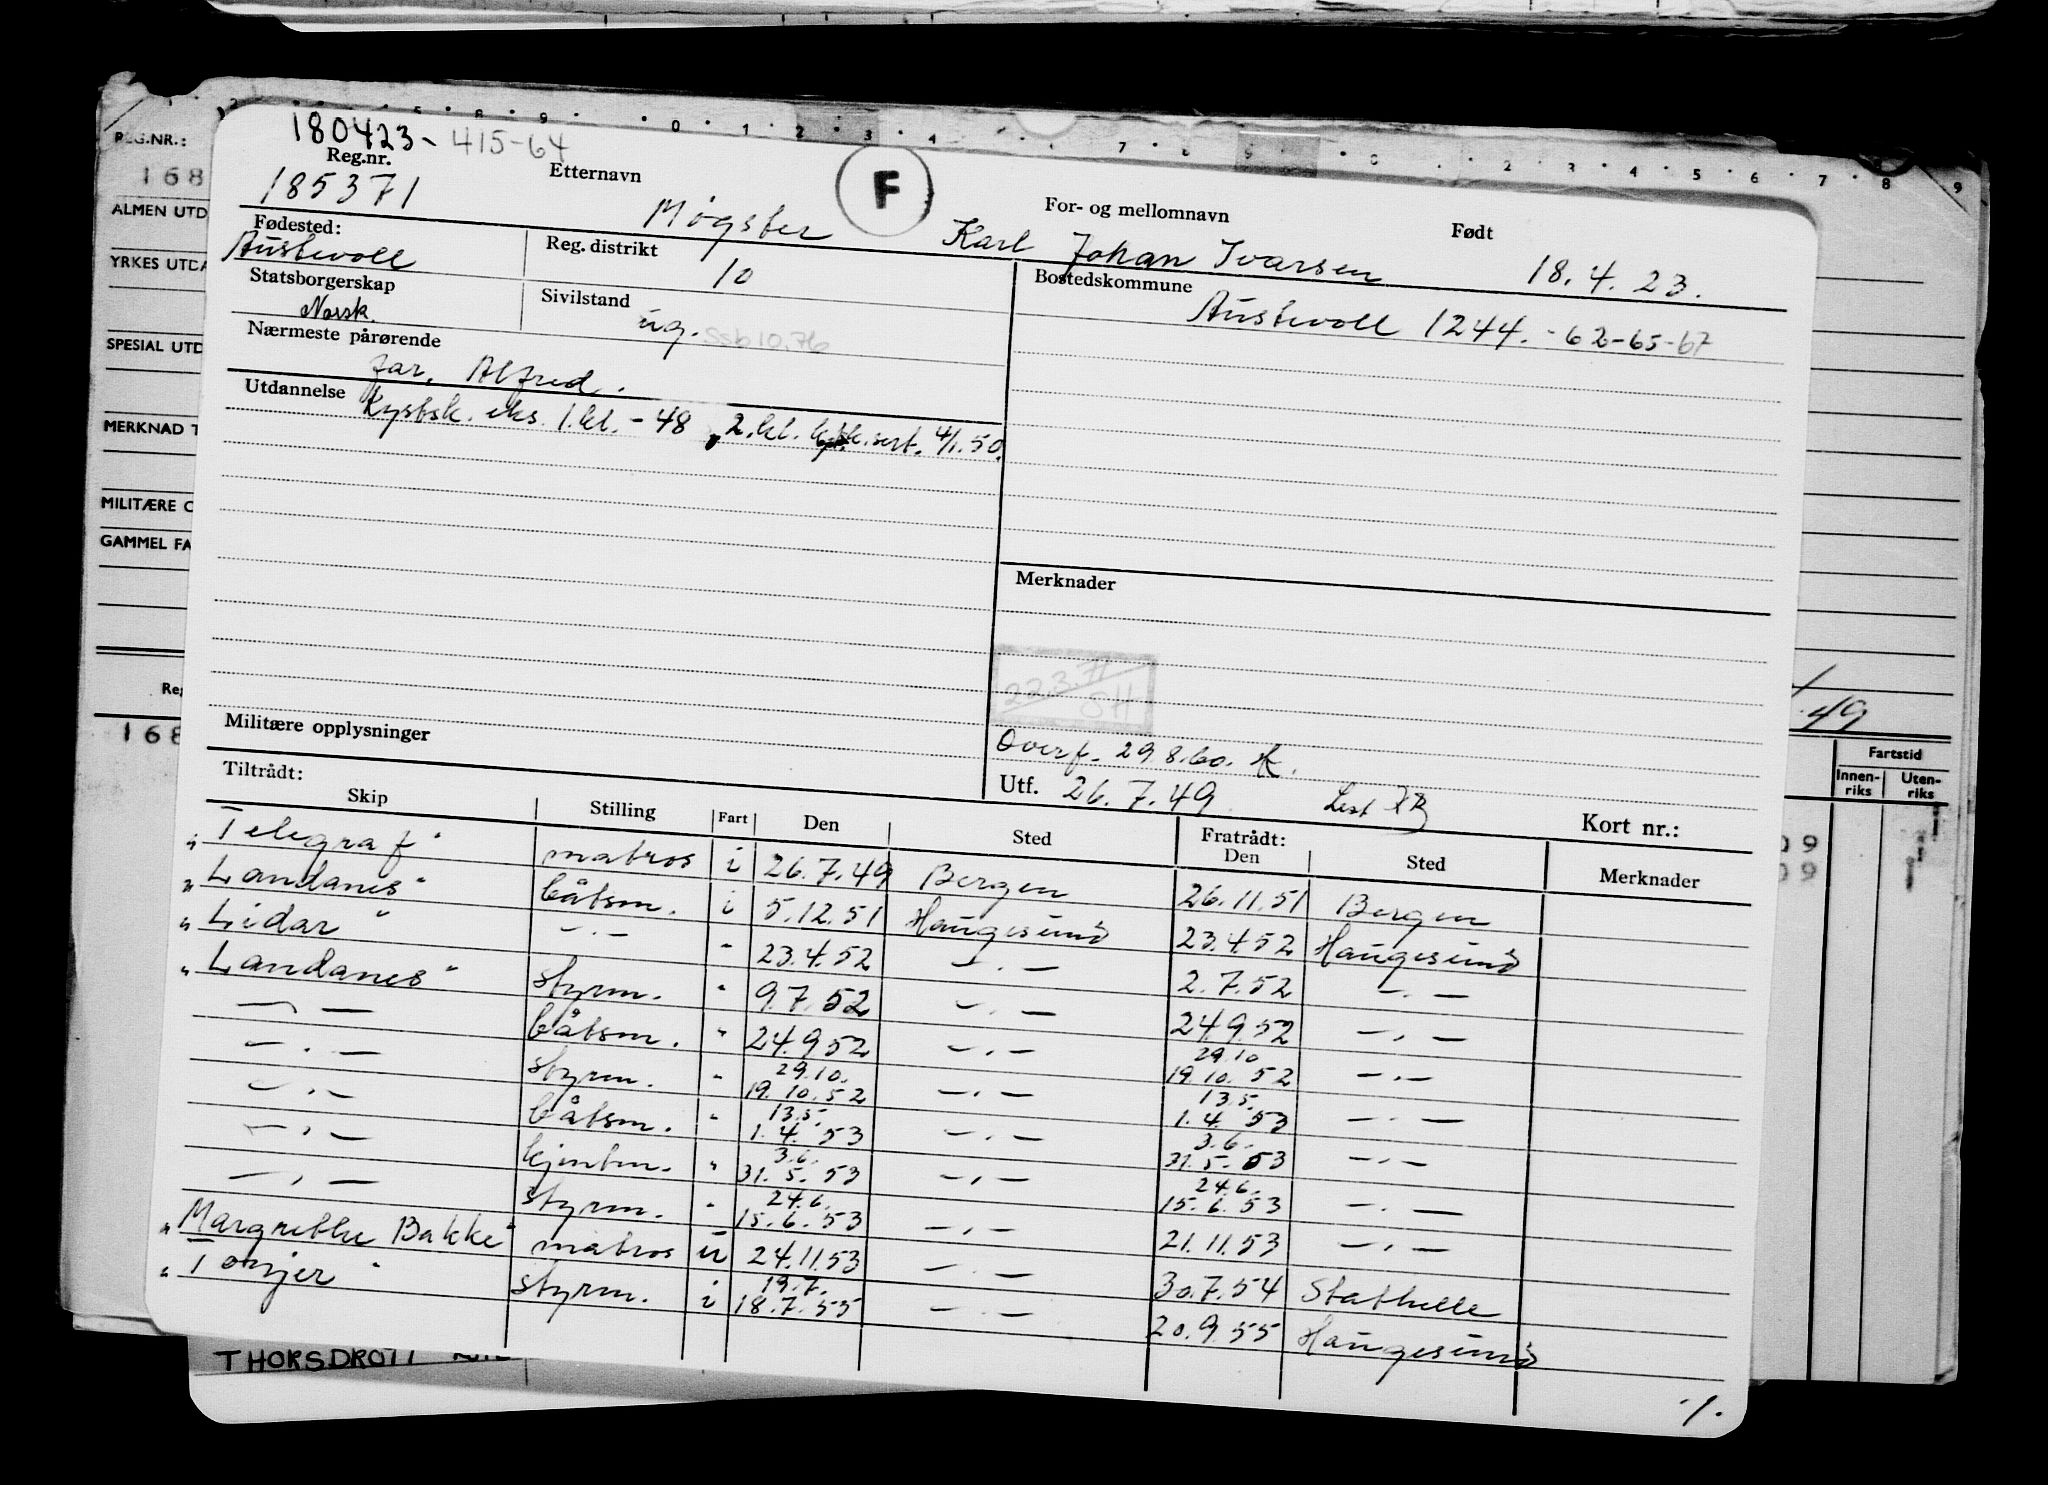 180423-415-64
Reg.nr. Etternavn F For- og mellomnavn Født
185371 Møgster Karl Johan Ivarsen 18.4.23.
Fødested: Austevoll Reg. distrikt 10 Bostedskommune Austevoll 1244.-62-65-67
Statsborgerskap Norsk. Sivilstand ug. Ssb 10.76
Nærmeste pårørende far, Alfred.
Utdannelse Kystsk. eks. 1.kl. - 48, 2.kl. sert. 4/1.50.
Merknader
22.3.71
SH
Militære opplysninger
Overf. 29.8.60.
Utf. 26.7.49 Kort nr.:
Tiltrådt: Fratrådt:
Skip Stilling Fart Den Sted Den Sted Merknader
"Telegraf" matros i 26.7.49 Bergen 26.11.51 Bergen
"Landanes" båtsm. i 5.12.51 Haugesund 23.4.52 Haugesund
"Lidar" -.- " 23.4.52 -.- 2.7.52 -.-
"Landanes" styrm. " 9.7.52 -.- 24.9.52 -.-
-.- båtsm. " 24.9.52 -.- 29.10 19.10.52 -.-
-.- styrm. " 29.10. 19.10.52 -.- 13.5. 1.4.53 -.-
-.- båtsm. " 13.5. 1.4.53 -.- 3.6. 31.5.53 -.-
-.- kjentm. " 3.6. 31.5.53 -.- 24.6. 15.6.53 -.-
-.- styrm. " 24.6. 15.6.53 -.- 21.11.53 -.-
"Margrethe Bakke" matros u 24.11.53 -.- 30.7.54 Stathelle
"Torjer" styrm. i 19.7. 18.7.55 -.- 20.9.55 Haugesund
./.
REG.NR.:
168
ALMEN UTD
YRKES UTDA
SPESIAL UTD
MERKNAD T
MILITÆRE O
GAMMEL FA
Reg
168
49
Fartstid
Innen-riks Uten-riks
09
09
THORSDROTT